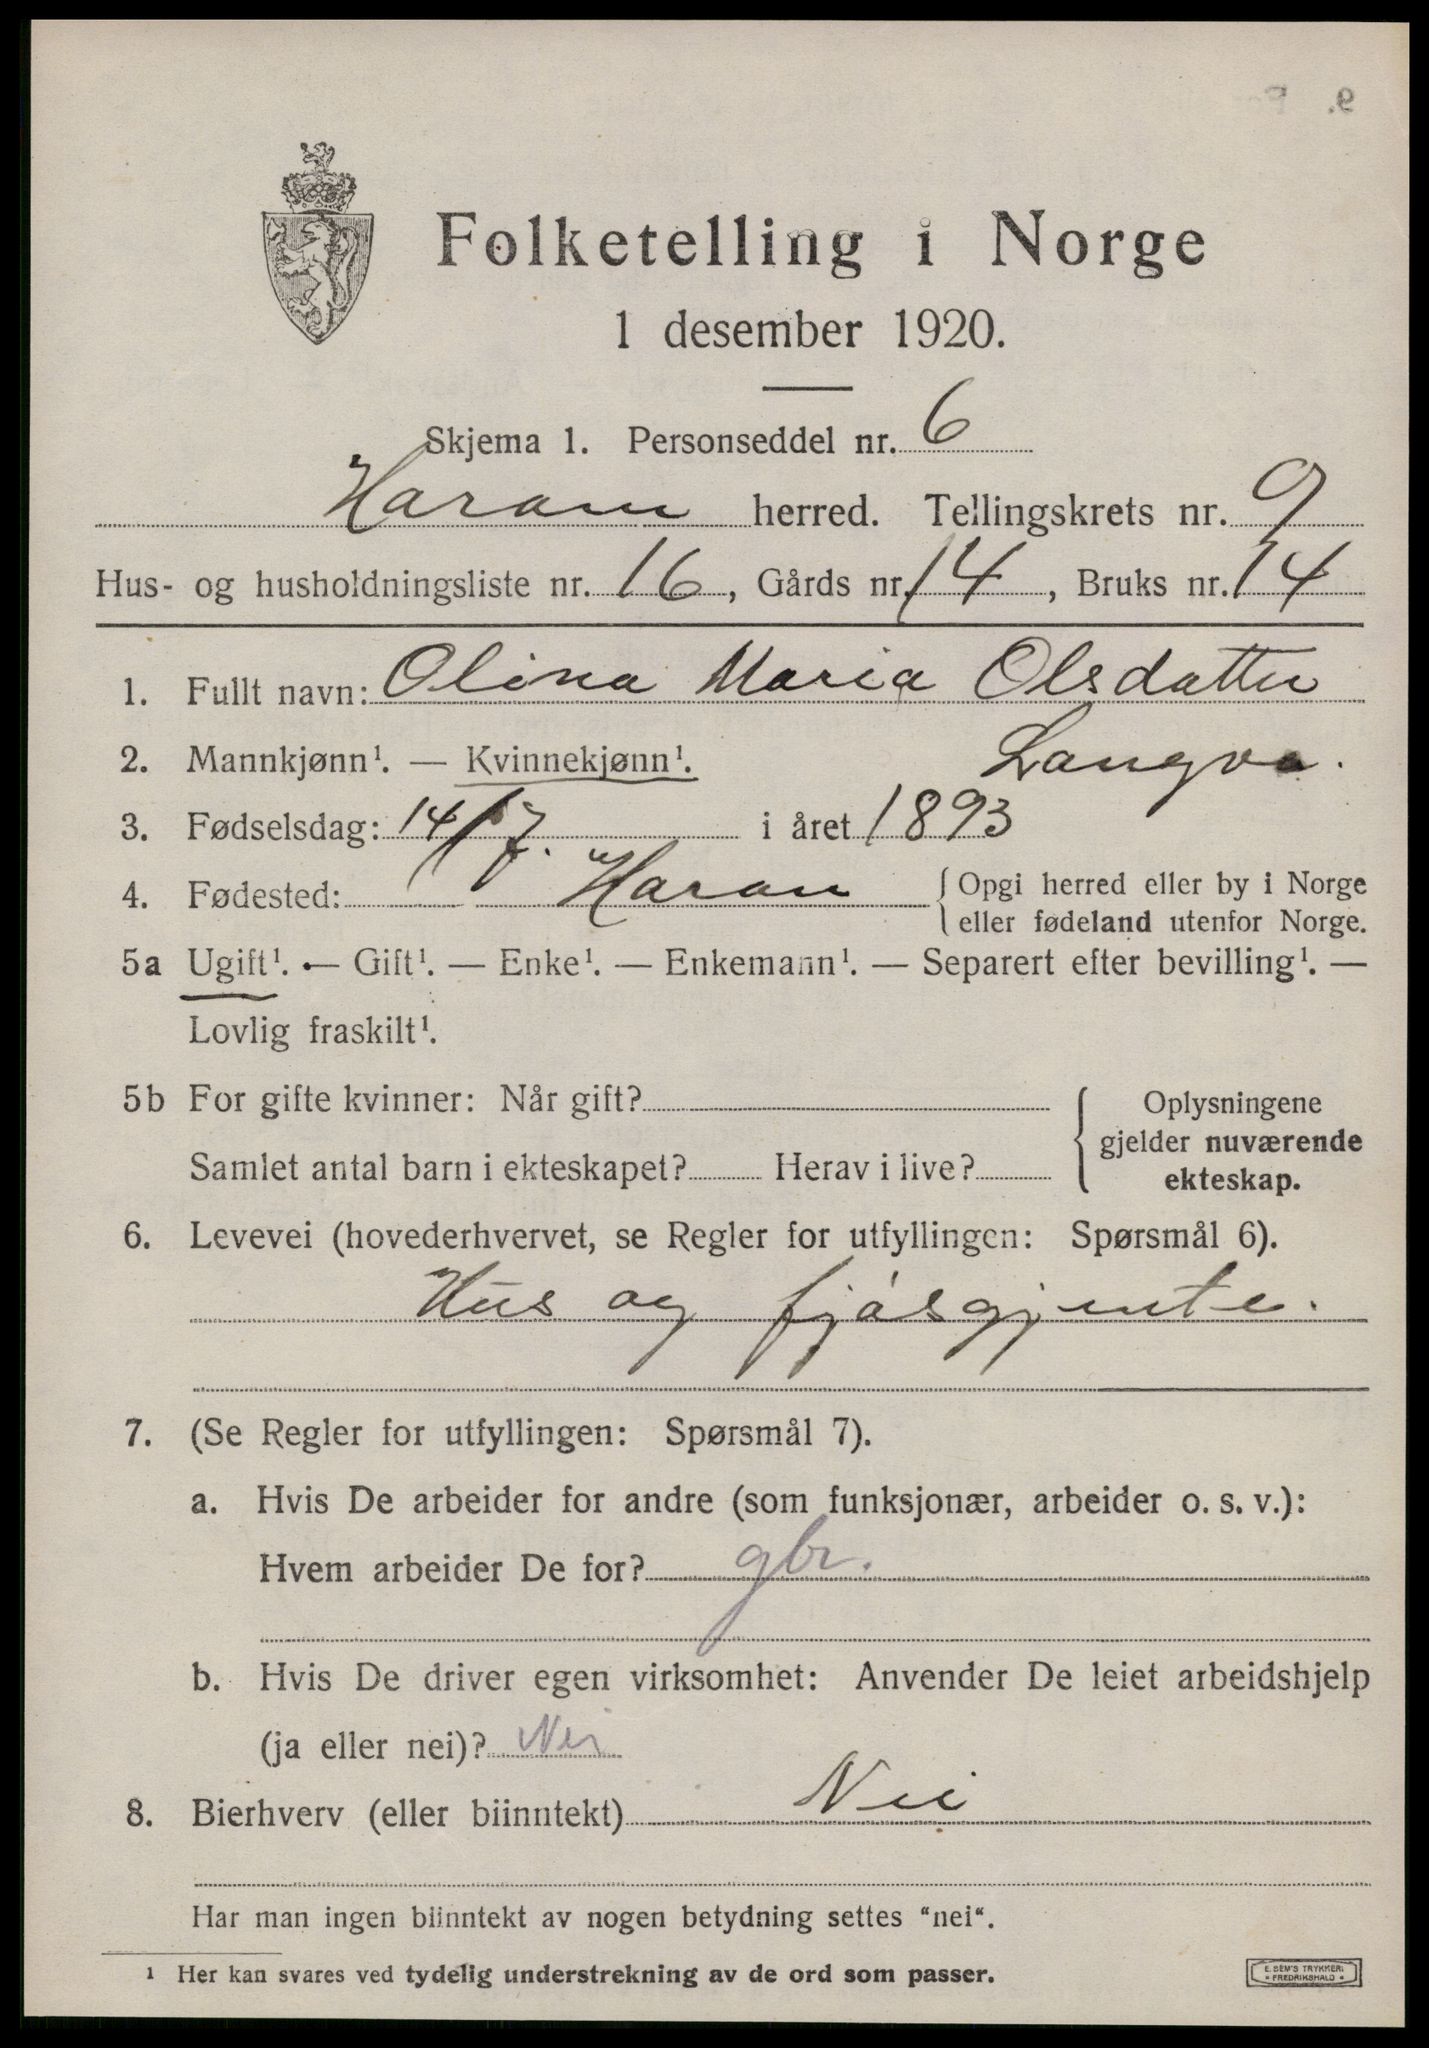 Folketelling i Norge
1 desember 1920.
Skjema 1. Personseddel nr. 6
Haram herred. Tellingskrets nr. 9
Hus- og husholdningsliste nr. 16, Gårds nr. 14, Bruks nr. 14
1. Fullt navn: Olina Maria Olsdatter
2. Mannkjønn¹. — Kvinnekjønn¹. Langva.
3. Fødselsdag: 14/7. i året 1893
4. Fødested: Haram { Opgi herred eller by i Norge
eller fødeland utenfor Norge.
5a Ugift¹. — Gift¹. — Enke¹. — Enkemann¹. — Separert efter bevilling¹. —
Lovlig fraskilt¹.
5b For gifte kvinner: Når gift? { Oplysningene
gjelder nuværende
Samlet antal barn i ekteskapet? Herav i live? ekteskap.
6. Levevei (hovederhvervet, se Regler for utfyllingen: Spørsmål 6).
Hus og fjósgjente.
7. (Se Regler for utfyllingen: Spørsmål 7).
a. Hvis De arbeider for andre (som funksjonær, arbeider o. s. v.):
Hvem arbeider De for? gbr.
b. Hvis De driver egen virksomhet: Anvender De leiet arbeidshjelp
(ja eller nei)? Nei
8. Bierhverv (eller biinntekt) Nei
Har man ingen biinntekt av nogen betydning settes "nei".
¹ Her kan svares ved tydelig understrekning av de ord som passer.
E. SEM'S TRYKKERI
FREDRIKSHALD